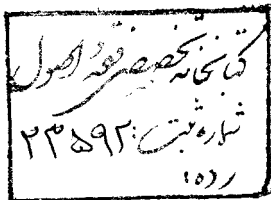 کتابخانه تخصصی فقه و اصول
شماره ثبت: ۲۳۵۹۲
رده: